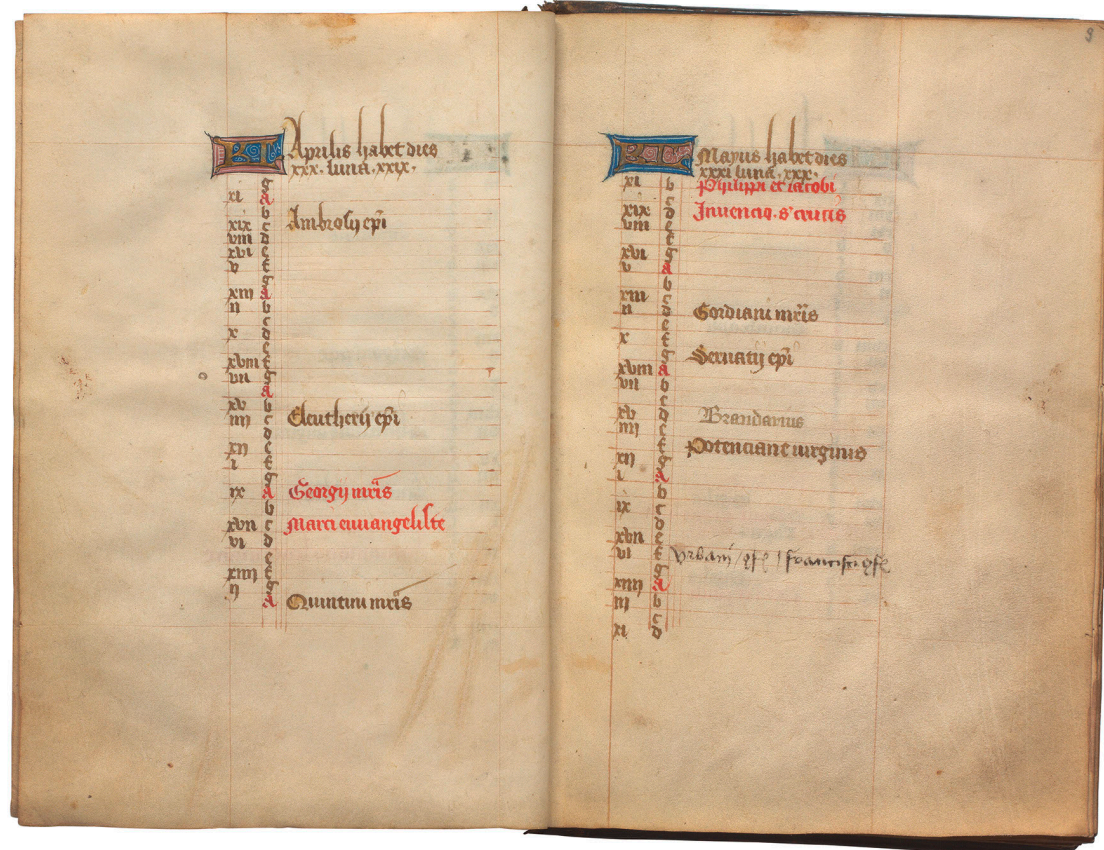 KL Aprilis habet dies
xxx. luna. xxix.
g
xi A
b
xix c Ambrosij epi
viii d
xvi e
v f
g
xiii A
ii b
c
x d
e
xviii f
vii g
A
xv b
iiii c Eleutherij epi
d
xii e
i f
g
ix A Georgij mris
b
xvii c Marci euuangeliste
vi d
e
xiiii f
iij g
A Quintini mris
9
KL Mayus habet dies
xxxi luna. xxx.
xi b Philippi et iacobi
c
xix d Inuencio. s' crucis
viii e
f
xvi g
v A
b
xiii c
ii d Gordiani mris
e
x f
g Seruatij epi
xviii A
vii b
c
xv d Brandarius
iiii e
f Potenciane uirginis
xii g
i A
b
ix c
d
xvii e
vi f Vrbani / 
g
xiiii A
iii b
c
xi d